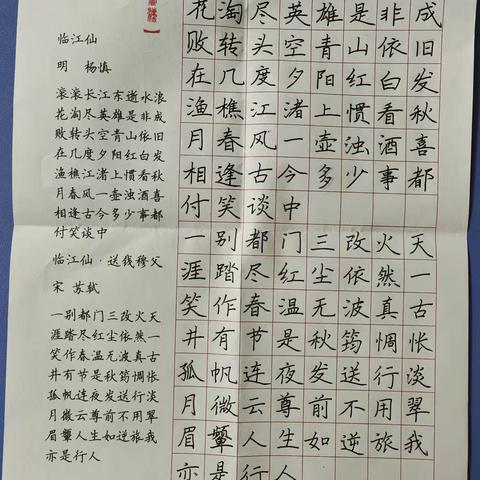 临江仙
明 杨慎
滚滚长江东逝水浪
花淘尽英雄是非成
败转头空青山依旧
在几度夕阳红白发
渔樵江渚上惯看秋
月春风一壶浊酒喜
相逢古今多少事都
付笑谈中
临江仙·送钱穆父
宋 苏轼
一别都门三改火天
涯踏尽红尘依然一
笑作春温无波真古
井有节是秋筠惆怅
孤帆连夜发送行淡
月微云尊前不用翠
眉颦人生如逆旅我
亦是行人
花淘尽英雄是非成
败转头空青山依旧
在几度夕阳红白发
渔樵江渚上惯看秋
月春风一壶浊酒喜
相逢古今多少事都
付笑谈中
一别都门三改火天
涯踏尽红尘依然一
笑作春温无波真古
井有节是秋筠惆怅
孤帆连夜发送行淡
月微云尊前不用翠
眉颦人生如逆旅我
亦是行人